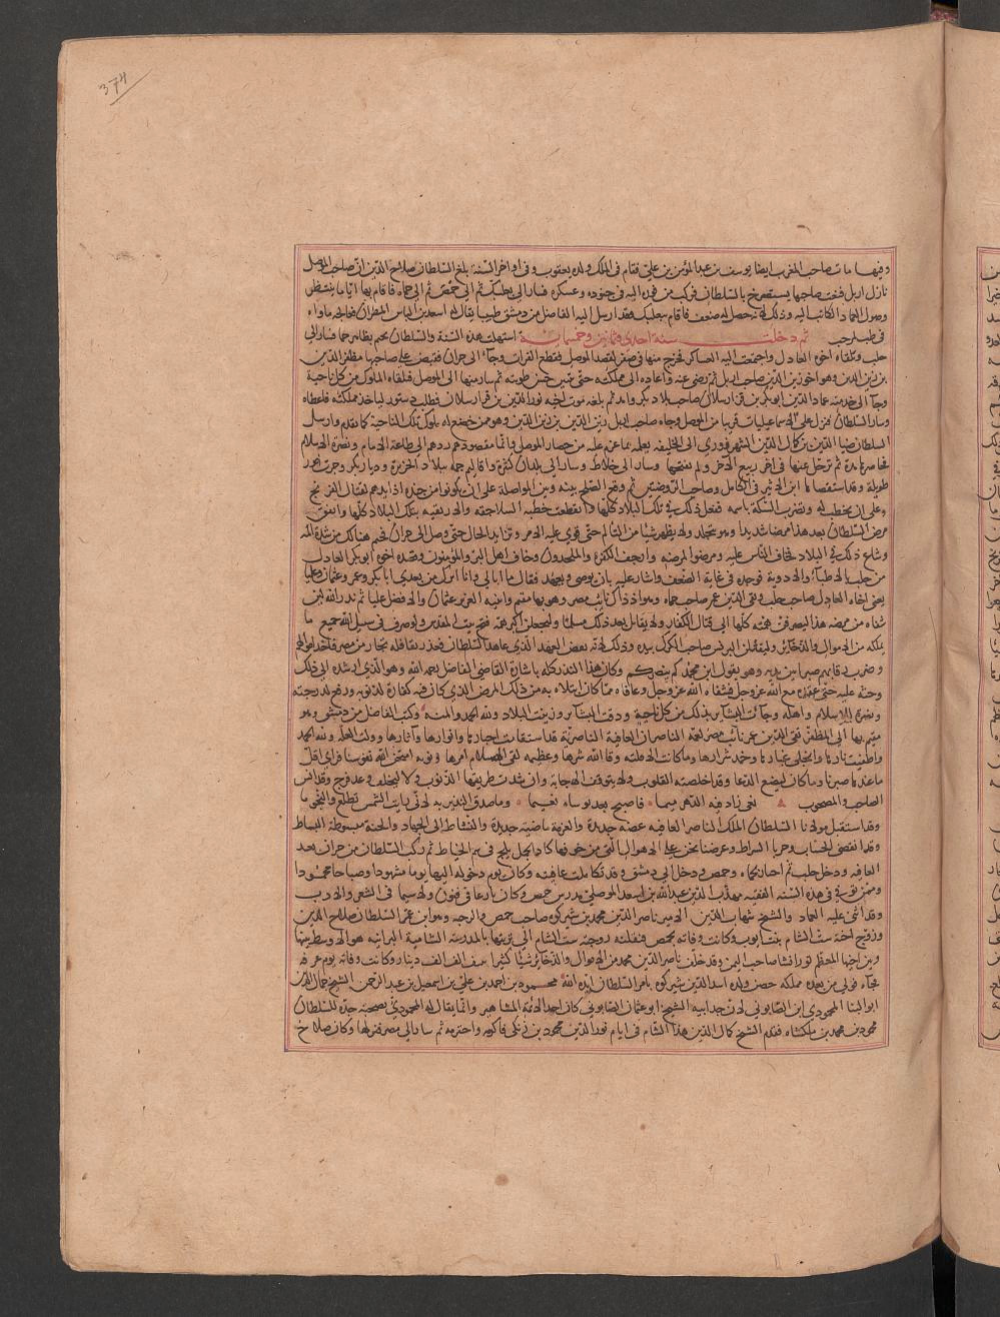 374
وفيها مات صاحب المغرب ايضا يوسف بن عبد المؤمن بن علي فقام في الملك ولده يعقوب وفي اواخر السنة بلغ السلطان صلاح الدين ان صاحب الموصل
نازل اربل فبعث صاحبها يستصرخ بالسلطان فركب من فوره اليه في جنوده وعسكره فسار الى بعلبك ثم الى حمص ثم الى حماه فاقام بها اياما ينتظر
وصول العماد الكاتب اليه وذلك لانه حصل له ضعف فاقام ببعلبك فقد ارسل اليه الفاضل من دمشق طبيبا يقال له اسعد بن الياس المطران فعالجه مداواة
من طب لمن حب ثم دخلت سنة احدى وثمانين وخمسمائة استهلت هذه السنة والسلطان مخيم بظاهر حماه فسار الى
حلب وتلقاه اخوه العادل واجتمعت اليه العساكر فخرج منها في صفر يقصد الموصل فقطع الفرات وجاء الى حران فقبض على صاحبها مظفر الدين
بن زين الدين وهو اخو زين الدين صاحب اربل ثم رضي عنه واعاده الى مملكته حتى تبين خبث طويته ثم سار منها الى الموصل فتلقاه الملوك من كل ناحية
وجاء الى خدمته عماد الدين ابو بكر بن قرا ارسلان صاحب بلاد بكر وامد ثم بلغه موت اخيه نور الدين بن قرا ارسلان فطلب دستور لياخذ مملكته فاعطاه
وسار السلطان فنزل على الاسماعيليات قريبا من الموصل وجاءه صاحب اربل زين الدين بن زين الدين وهو ممن خضع له ملوك تلك الناحية كما تقدم وارسل
السلطان ضيا الدين بن كمال الدين الشهرزوري الى الخليفه يعلمه بما عزم عليه من حصار الموصل وانما مقصوده ردهم الى طاعة الامام ونصرة الاسلام
فحاصرها مدة ثم ترحل عنها في اخر ربيع الاخر ولم يفتحها وسار الى خلاط وسار الى بلدان كثيرة واقاليم جمه ببلاد الجزيرة وديار بكر وجرت امور
طويلة وقد استقصاها ابن الاثير في الكامل وصاحب الروضتين ثم وقع الصلح بينه وبين المواصلة على ان يكونوا من جنده اذا ندبهم لقتال الفرنج
وعلى ان يخطب له وتضرب السكة باسمه ففعل ذلك في تلك البلاد كلها وانقطعت خطبه السلاجقه والارتقيه بتلك البلاد كلها واتفق
مرض السلطان بعد هذا مرضا شديدا وهو يتجلد ولا يظهر شيئا من التألم حتى قوي عليه الامر وتزايد الحال حتى وصل الى حران فخيم هنالك من شدة المه
وشاع ذلك في البلاد فخاف الناس عليه ومرضوا لمرضه وارجف الكفرة والملحدون وخاف اهل البر والمؤمنون وقصده اخوه ابو بكر العادل
من حلب بالاطباء والادوية فوجده في غاية الضعف واشار عليه بان يوصي ويعهد فقال ما ابالي وانا اترك من بعدي ابا بكر وعمر وعثمان وعليا
يعني اخاه العادل صاحب حلب وتقي الدين عمر صاحب حماه وهو اذ ذاك نائب مصر وهو بها مقيم وابنيه العزيز عثمان والافضل عليا ثم نذر لله لئن
شفاه من مرضه هذا ليصرفن همته كلها الى قتال الكفار ولا يقاتل بعد ذلك مسلما وليجعلن اكبر همه فتح بيت المقدس ولو صرف في سبيل الله جميع ما
يملكه من الاموال والذخائر وليقتلن البرنس صاحب الكرك بيده وذلك لانه نقض العهد الذي عاهد السلطان فغدر بقافلة تجار من مصر فاخذ اموالهم
وضرب رقابهم صبرا بين يديه وهو يقول اين محمدكم ينصركم وكان هذا النذر كله باشارة القاضي الفاضل رحمه الله وهو الذي ارشده الى ذلك
وحثه عليه حتى عقده مع الله عز وجل فشفاه الله عز وجل وعافاه مما كان ابتلاه به من ذلك المرض الذي كان فيه كفارة لذنوبه ورفع لدرجته
ونصرة للاسلام واهله وجات البشاير بذلك من كل ناحية ودقت البشاير وزينت البلاد ولله الحمد والمنه وكتب الفاضل من دمشق وهو
مقيم بها الى المظفر تقي الدين عمر نائب مصر لعمه الناصر ان العافية الناصرية قد استفاضت اخبارها وانوارها واثارها وولت العلة ولله الحمد
واطفيت نارها وانجلى غبارها وخمد شرارها وما كانت الا فلتة وقى الله شرها وعظيمه كفى الاسلام امرها ونوبه امتحن الله نفوسنا فراى اقل
ما عندها صبرنا وما كان ليضيع الدعا وقد اخلصته القلوب ولا يتوقف الاجابة وان سدت طريقها الذنوب ولا ليخلف وعد فرج وقد ايس
الصاحب والمصحوب نعي زاد فيه الدهر ميما فاصبح بعد بؤساه نعيما وما صدق النذير به لاني رايت الشمس تطلع والنجوما
وقد استقبل مولانا السلطان الملك الناصر العافيه غضه جديدة والعزمة ماضية جديدة والنشاط الى الجهاد والجنة مبسوطة البساط
وقد انقضى الحساب وجزنا الصراط وعرضنا نحن على الاهوال التي من خوفها كاد الجمل يلج في سم الخياط ثم ركب السلطان من حران بعد
العافيه ودخل حلب ثم اجتاز بحماه وحمص ودخل الى دمشق وقد تكاملت عافيته وكان يوم دخوله اليها يوما مشهودا وصباحا محمودا
وممن توفي في هذه السنه الفقيه مهذب الدين عبد الله بن اسعد الموصلي مدرس حمص وكان بارعا في فنون ولا سيما في الشعر والادب
وقد اثنى عليه العماد والشيخ شهاب الدين الامير ناصر الدين محمد بن شيركوه صاحب حمص والرحبه وهو ابن عم السلطان صلاح الدين
وزوج اخته ست الشام بنت ايوب وكانت وفاته بحمص فنقلته زوجته ست الشام الى تربتها بالمدرسة الشامية البرانيه فهو الاوسط بينها
وبين اخيها المعظم توران شاه صاحب اليمن وقد خلف ناصر الدين محمد من الاموال والذخاير شيئا كثيرا ينيف الف الف دينار وكانت وفاته يوم عرفه
فجاه فولي من بعده مملكه حمص ولده اسد الدين شيركوه بامر السلطان ايده الله محمود بن احمد بن علي بن اسمعيل بن عبد الرحمن الشيخ جمال الدين
ابو الثنا المحمودي ابن الصابوني لان جد ابيه الشيخ ابو عثمان الصابوني كان احد الائمه المشاهير وانما يقال له المحمودي بصحبة جده للسلطان
محمود بن محمد بن ملكشاه فقدم الشيخ كمال الدين هذا الشام في ايام نور الدين محمود بن زنكي فاكرمه واحترمه ثم سار الى مصر فنزلها وكان صلاح